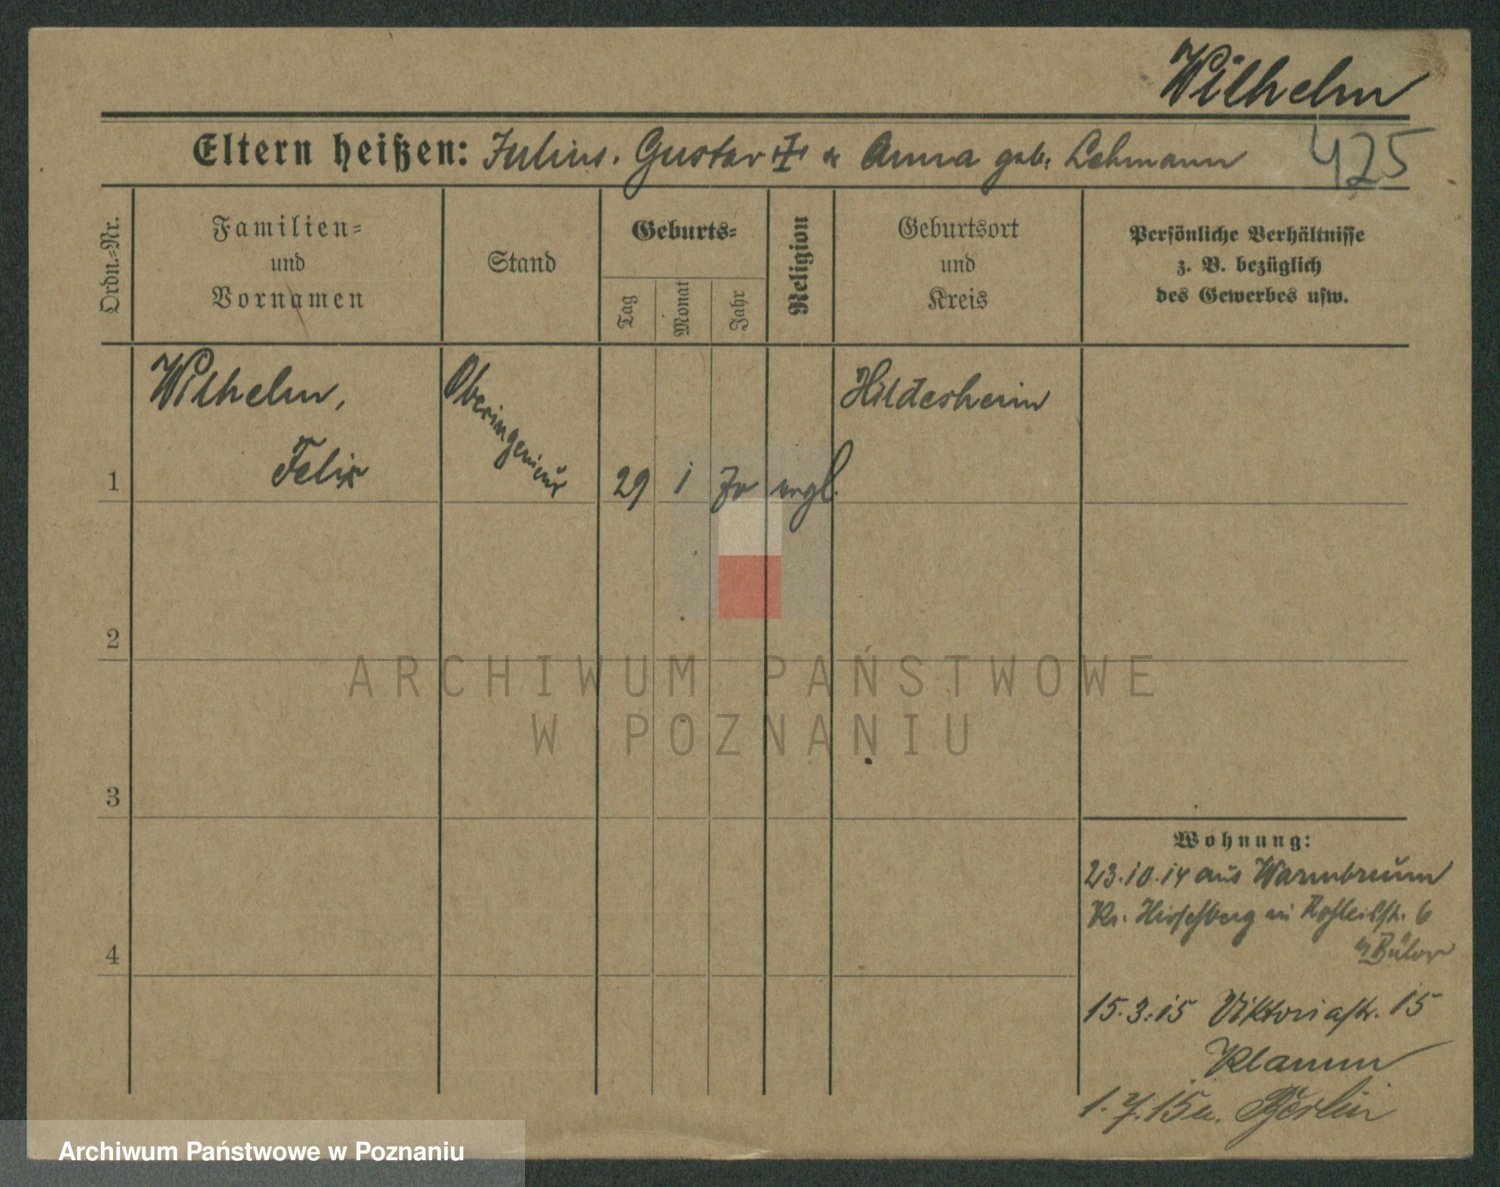 Wilhelm
Eltern heißen: Julius. Gustav ✝ u Anna geb. Lehmann
425
Ordn.-Nr.
Familien=
und
Vornamen
Stand
Geburts=
Tag
Monat
Jahr
Religion
Geburtsort
und
Kreis
Persönliche Verhältnisse
z. B. bezüglich
des Gewerbes usw.
1
Wilhelm,
Felix
Oberingenieur
29
1
70
evgl.
Hildesheim
2
3
4
Wohnung:
23.10.14 aus Warmbrunn
Kr. Hirschberg in 6
Bülow
15.3.15 Viktoriastr. 15
Klamm
1.7.15 n. Berlin
ARCHIWUM PAŃSTWOWE
W POZNANIU
Archiwum Państwowe w Poznaniu